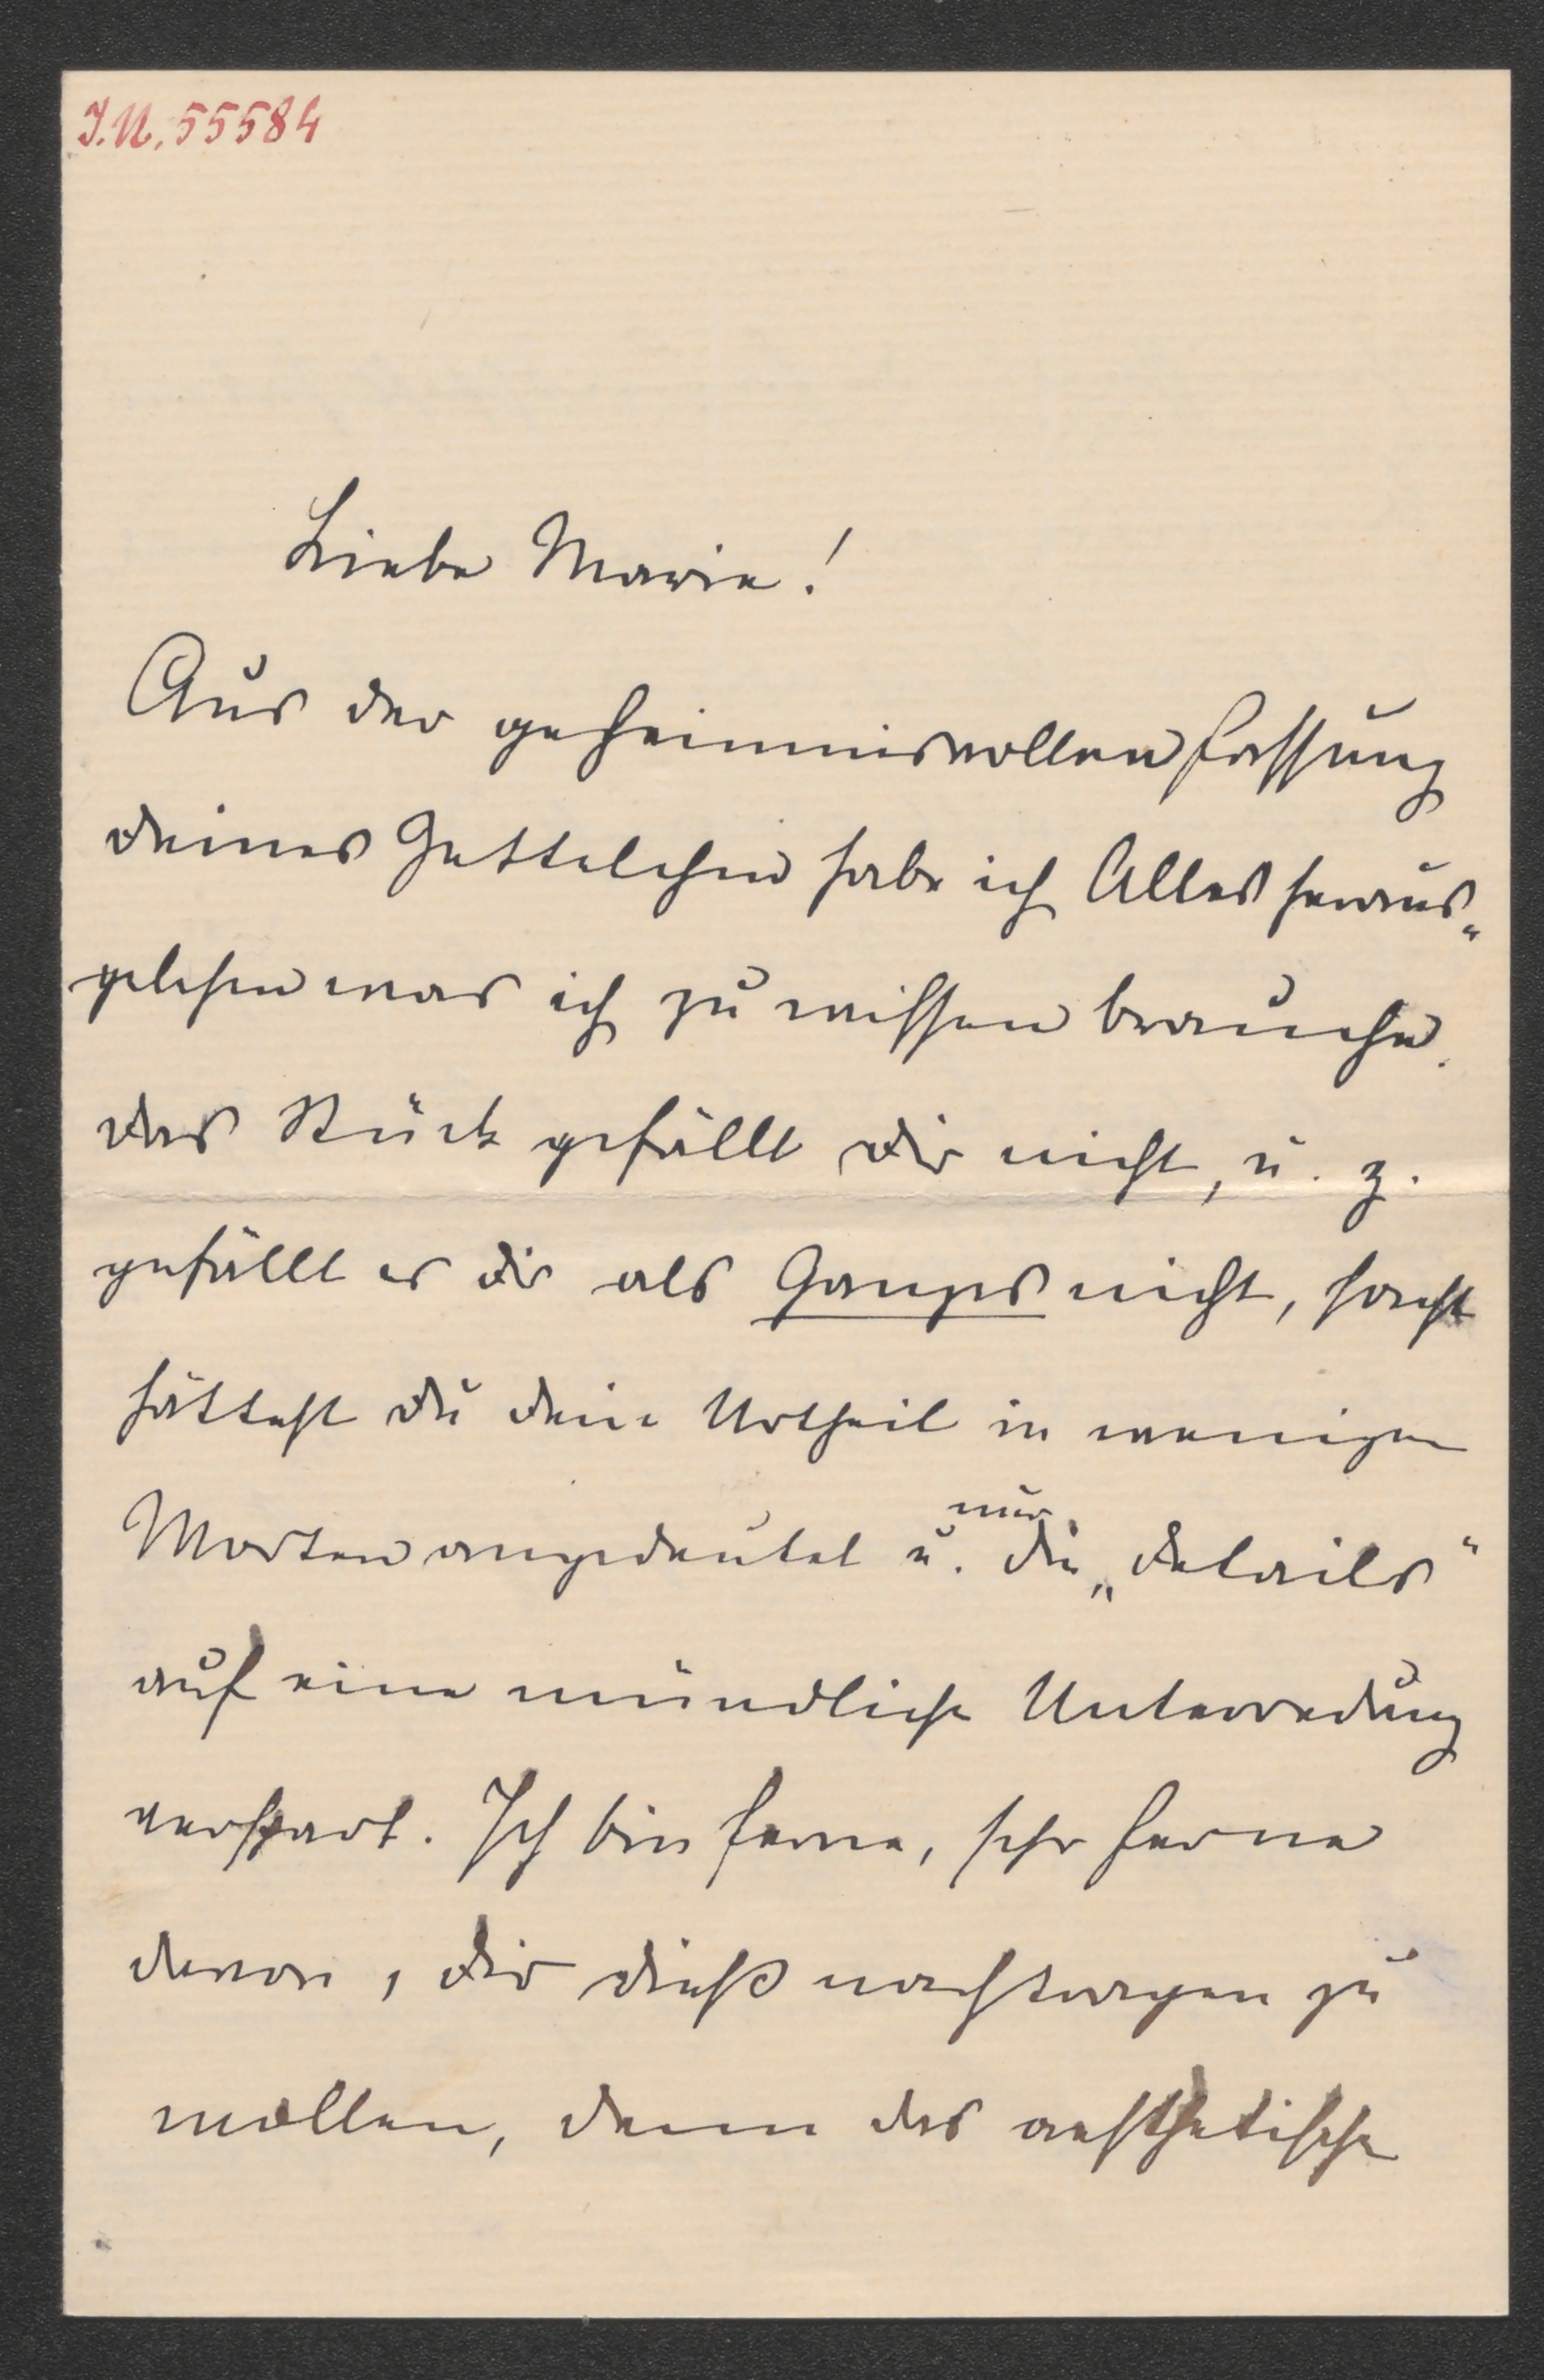 I.N. 55584
Liebe Marie!
Aus der geheimnisvollen Fassung
deines Zettelchen habe ich Alles heraus-
gelesen was ich zu wissen brauche.
das Stück gefällt dir nicht, u. z.
gefällt es dir als Ganzes nicht, sonst
hättest du dein Urtheil in wenigen
Worten angedeutet u. nur die „details“
auf eine mündliche Unterredung
verspart. Ich bin ferne, sehr ferne
davon, dir dieß nachtragen zu
wollen, denn das aesthetische